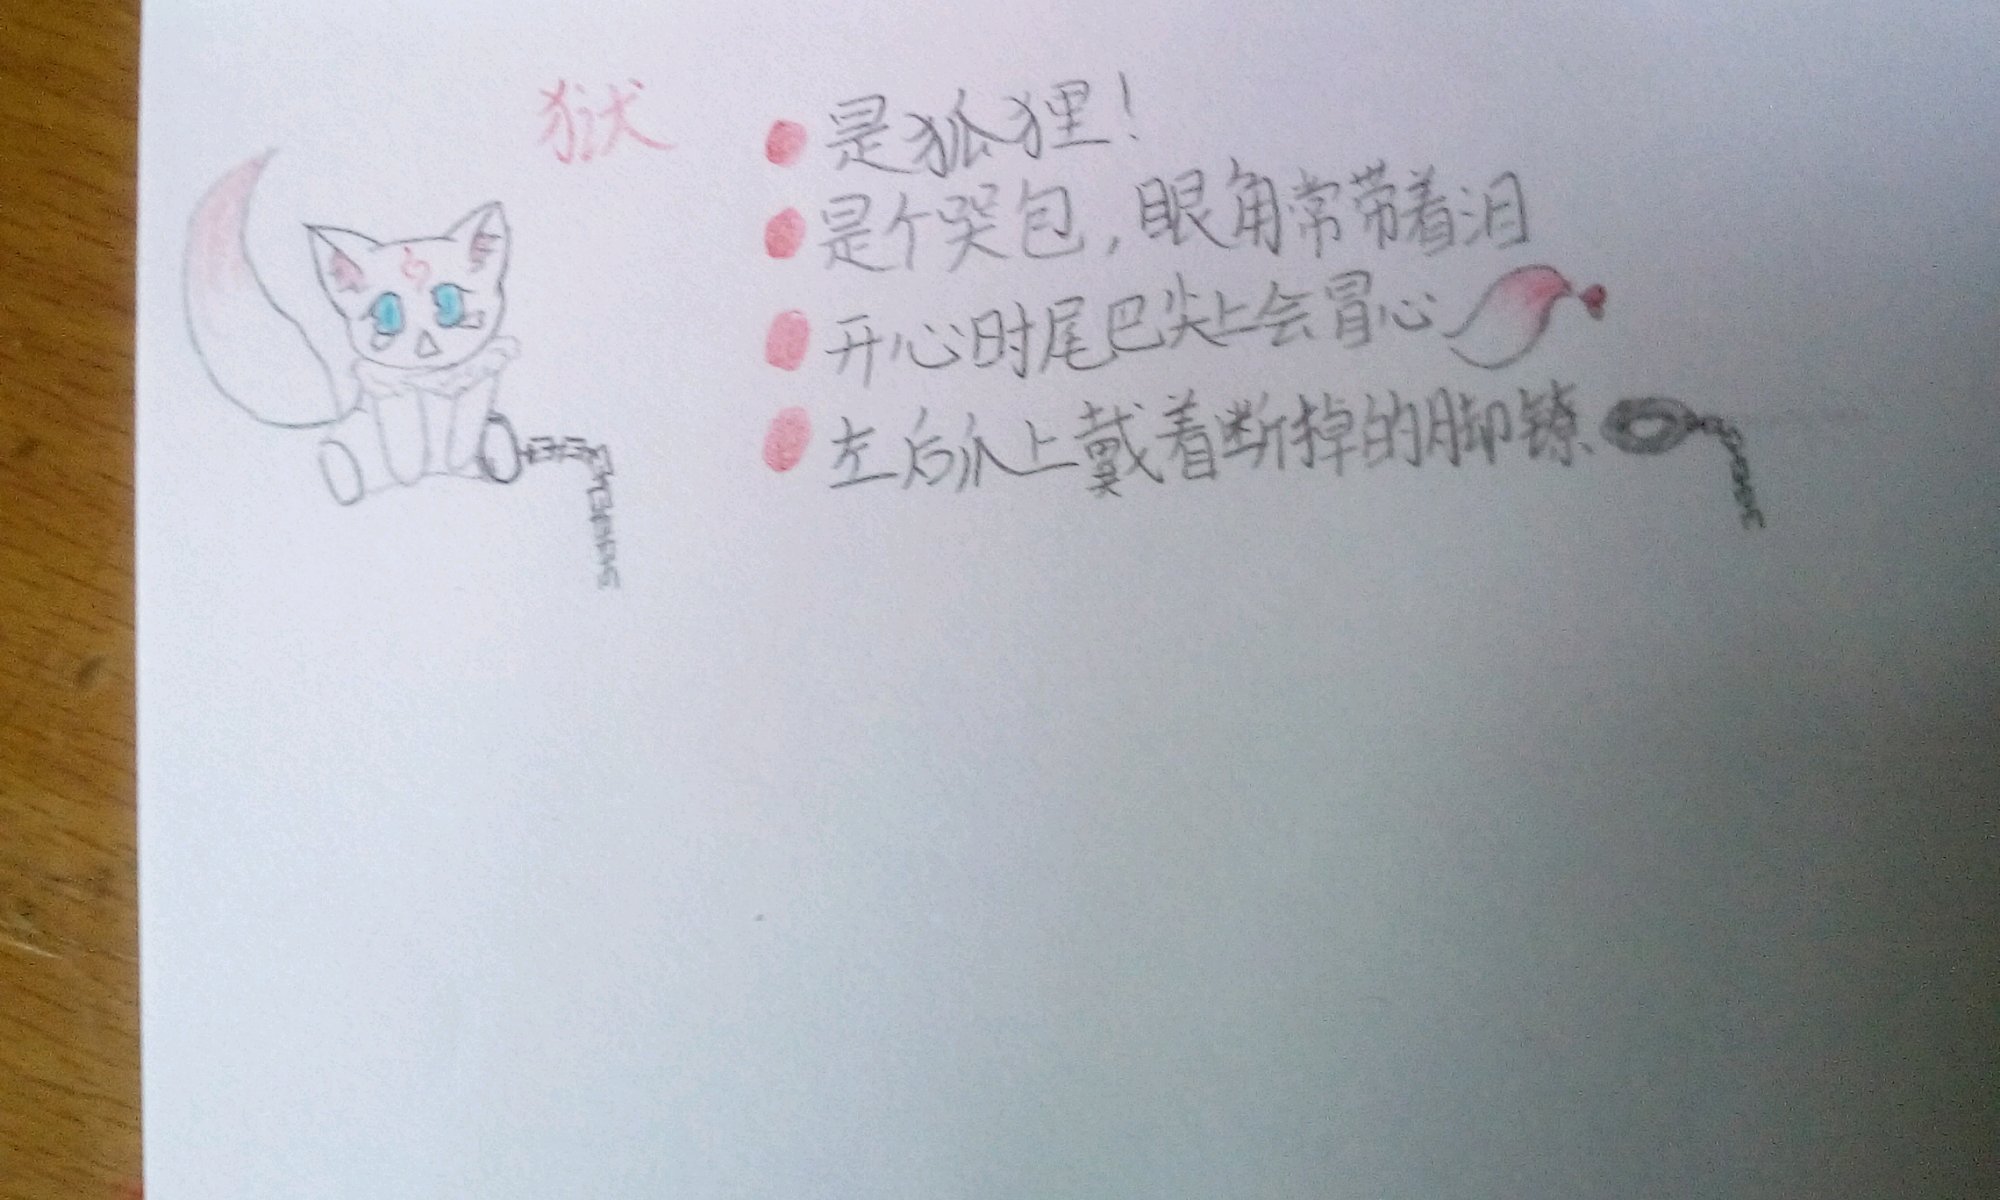 狱
是狐狸！
是个哭包，眼角常带着泪
开心时尾巴尖上会冒心
左后爪上戴着断掉的脚镣